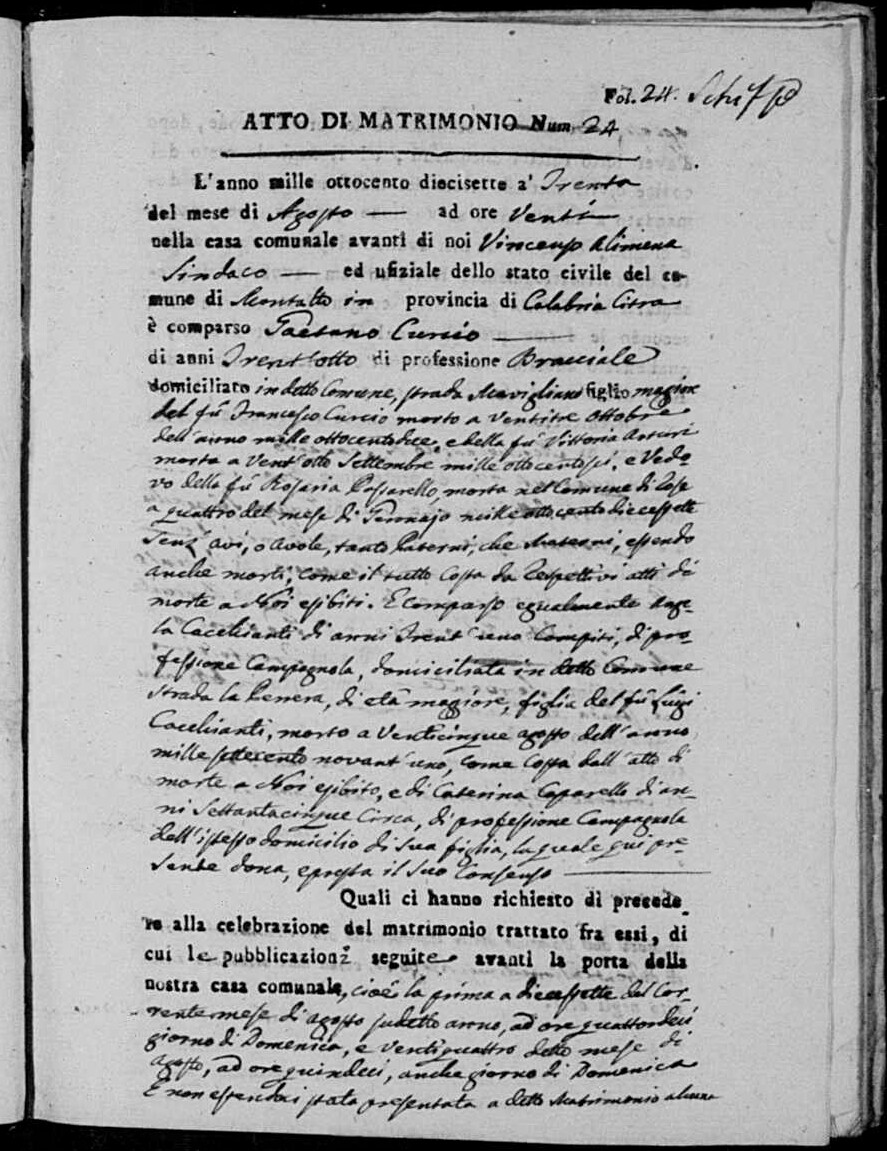 Fol. 24.
ATTO DI MATRIMONIO Num. 24
L'anno mille ottocento diecisette a' Trenta
del mese di Agosto — ad ore Venti
nella casa comunale avanti di noi Vincenzo Alimena
Sindaco — ed ufiziale dello stato civile del co-
mune di Montalto in provincia di Calabria Citra
è comparso Gaetano Curcio —
di anni Trent'otto di professione Bracciale
domiciliato in detto Comune, strada Mavigliano figlio magiore
del fù Francesco Curcio morto a Ventitre Ottobre
dell'anno mille ottocentodiece, e della fù Vittoria Arturi
morta a Vent'otto Settembre mille ottocentosei, e Vedo-
vo della fù Rosaria Passarello, morta nel Comune di Rose
a quattro del mese di Gennajo mille ottocento diecessette
Senz'avi, o avole, tanto Paterni, che Materni, essendo
anche morti, come il tutto Costa da Respettivi atti di
morte a Noi esibiti. E comparso egualmente Ange-
la Cacchianti di anni Trent'uno Compiti, di pro-
fessione Campagnola, domiciliata in detto Comune
Strada la Perrera, di età magiore, figlia del fù Luigi
Cacchianti, morto a Venticinque agosto dell'anno
mille settecento novant'uno, come Costa dall'atto di
morte a Noi esibito, e di Caterina Caparello di an-
ni Settantacinque Circa, di professione Campagnola
dell'istesso domicilio di Sua figlia, la quale qui pre-
sente dona, e presta il Suo Consenso —
Quali ci hanno richiesto di procede
re alla celebrazione del matrimonio trattato fra essi, di
cui le pubblicazioni seguite avanti la porta della
nostra casa comunale, cioè la prima a diecessette del Cor-
rente mese di agosto sudetto anno, ad ore quattordeci
giorno di Domenica, e Ventiquattro detto mese di
agosto, ad ore quindeci, anche giorno di Domenica
E non essendosi stata presentata a detto Matrimonio alcuna